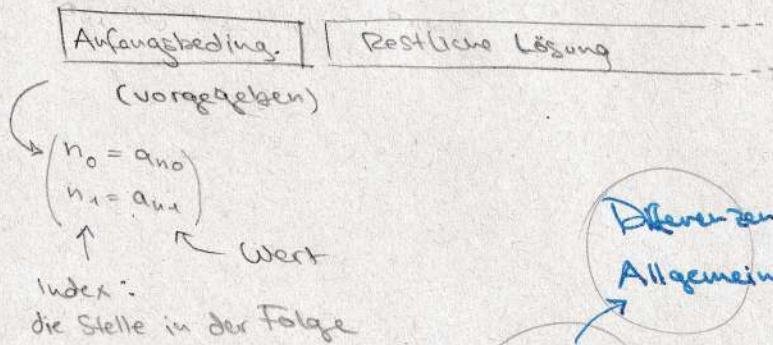 Anfangsbeding. Restliche Lösung
(vorgegeben)
n₀ = aₙ₀
n₁ = aₙ₁
Wert
Index:
die Stelle in der Folge
Differenzen
Allgemein